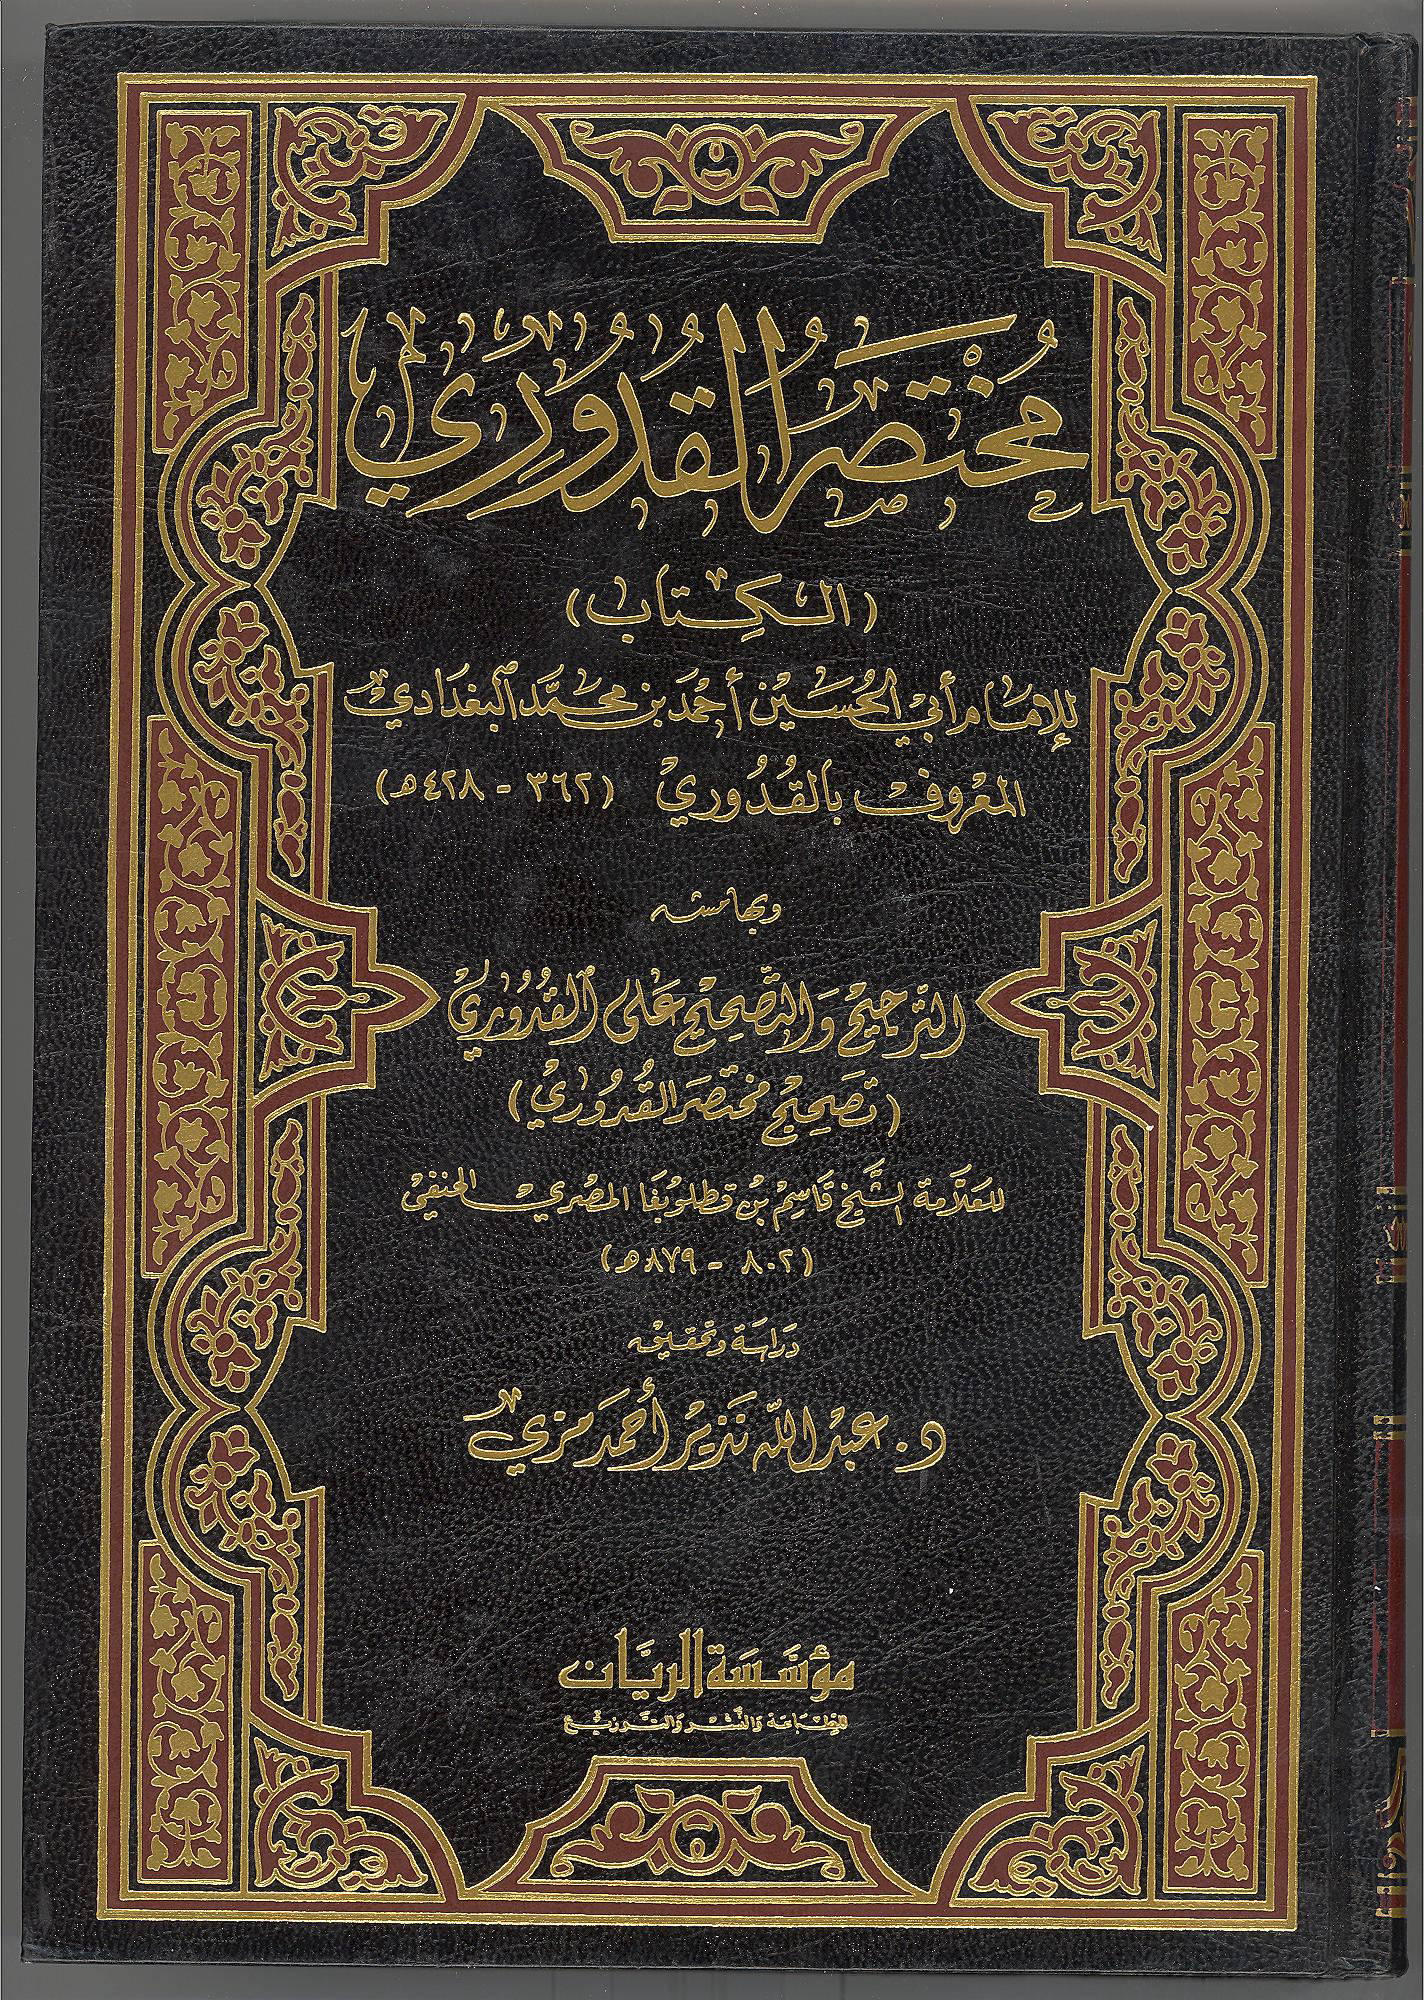 مُخْتَصَرُ القُدُورِي
(الكِتَاب)
للإمَام أبي الحُسَيْن أحْمَد بن محَمَّد البَغْدَادي
المعْرُوف بالقُدُوري (٣٦٢ - ٤٢٨هـ)
وبهامشه
التَّرجِيْح وَالتَّصْحِيْح عَلى القُدُوْرِي
(تَصْحِيْح مخْتصَر القُدُوْرِي)
للعَلَّامة الشَّيْخ قَاسِمْ بْن قطلوبغا المصْري الحنفي
(٨٠٢ - ٨٧٩هـ)
دِرَاسَة وتحقيق
د. عَبْد اللّه نَذِيْر أَحمَد مزي
مُؤسَّسَة الريَّان
للطِّبَاعَة وَالنَّشْر وَالتَّوزيْع